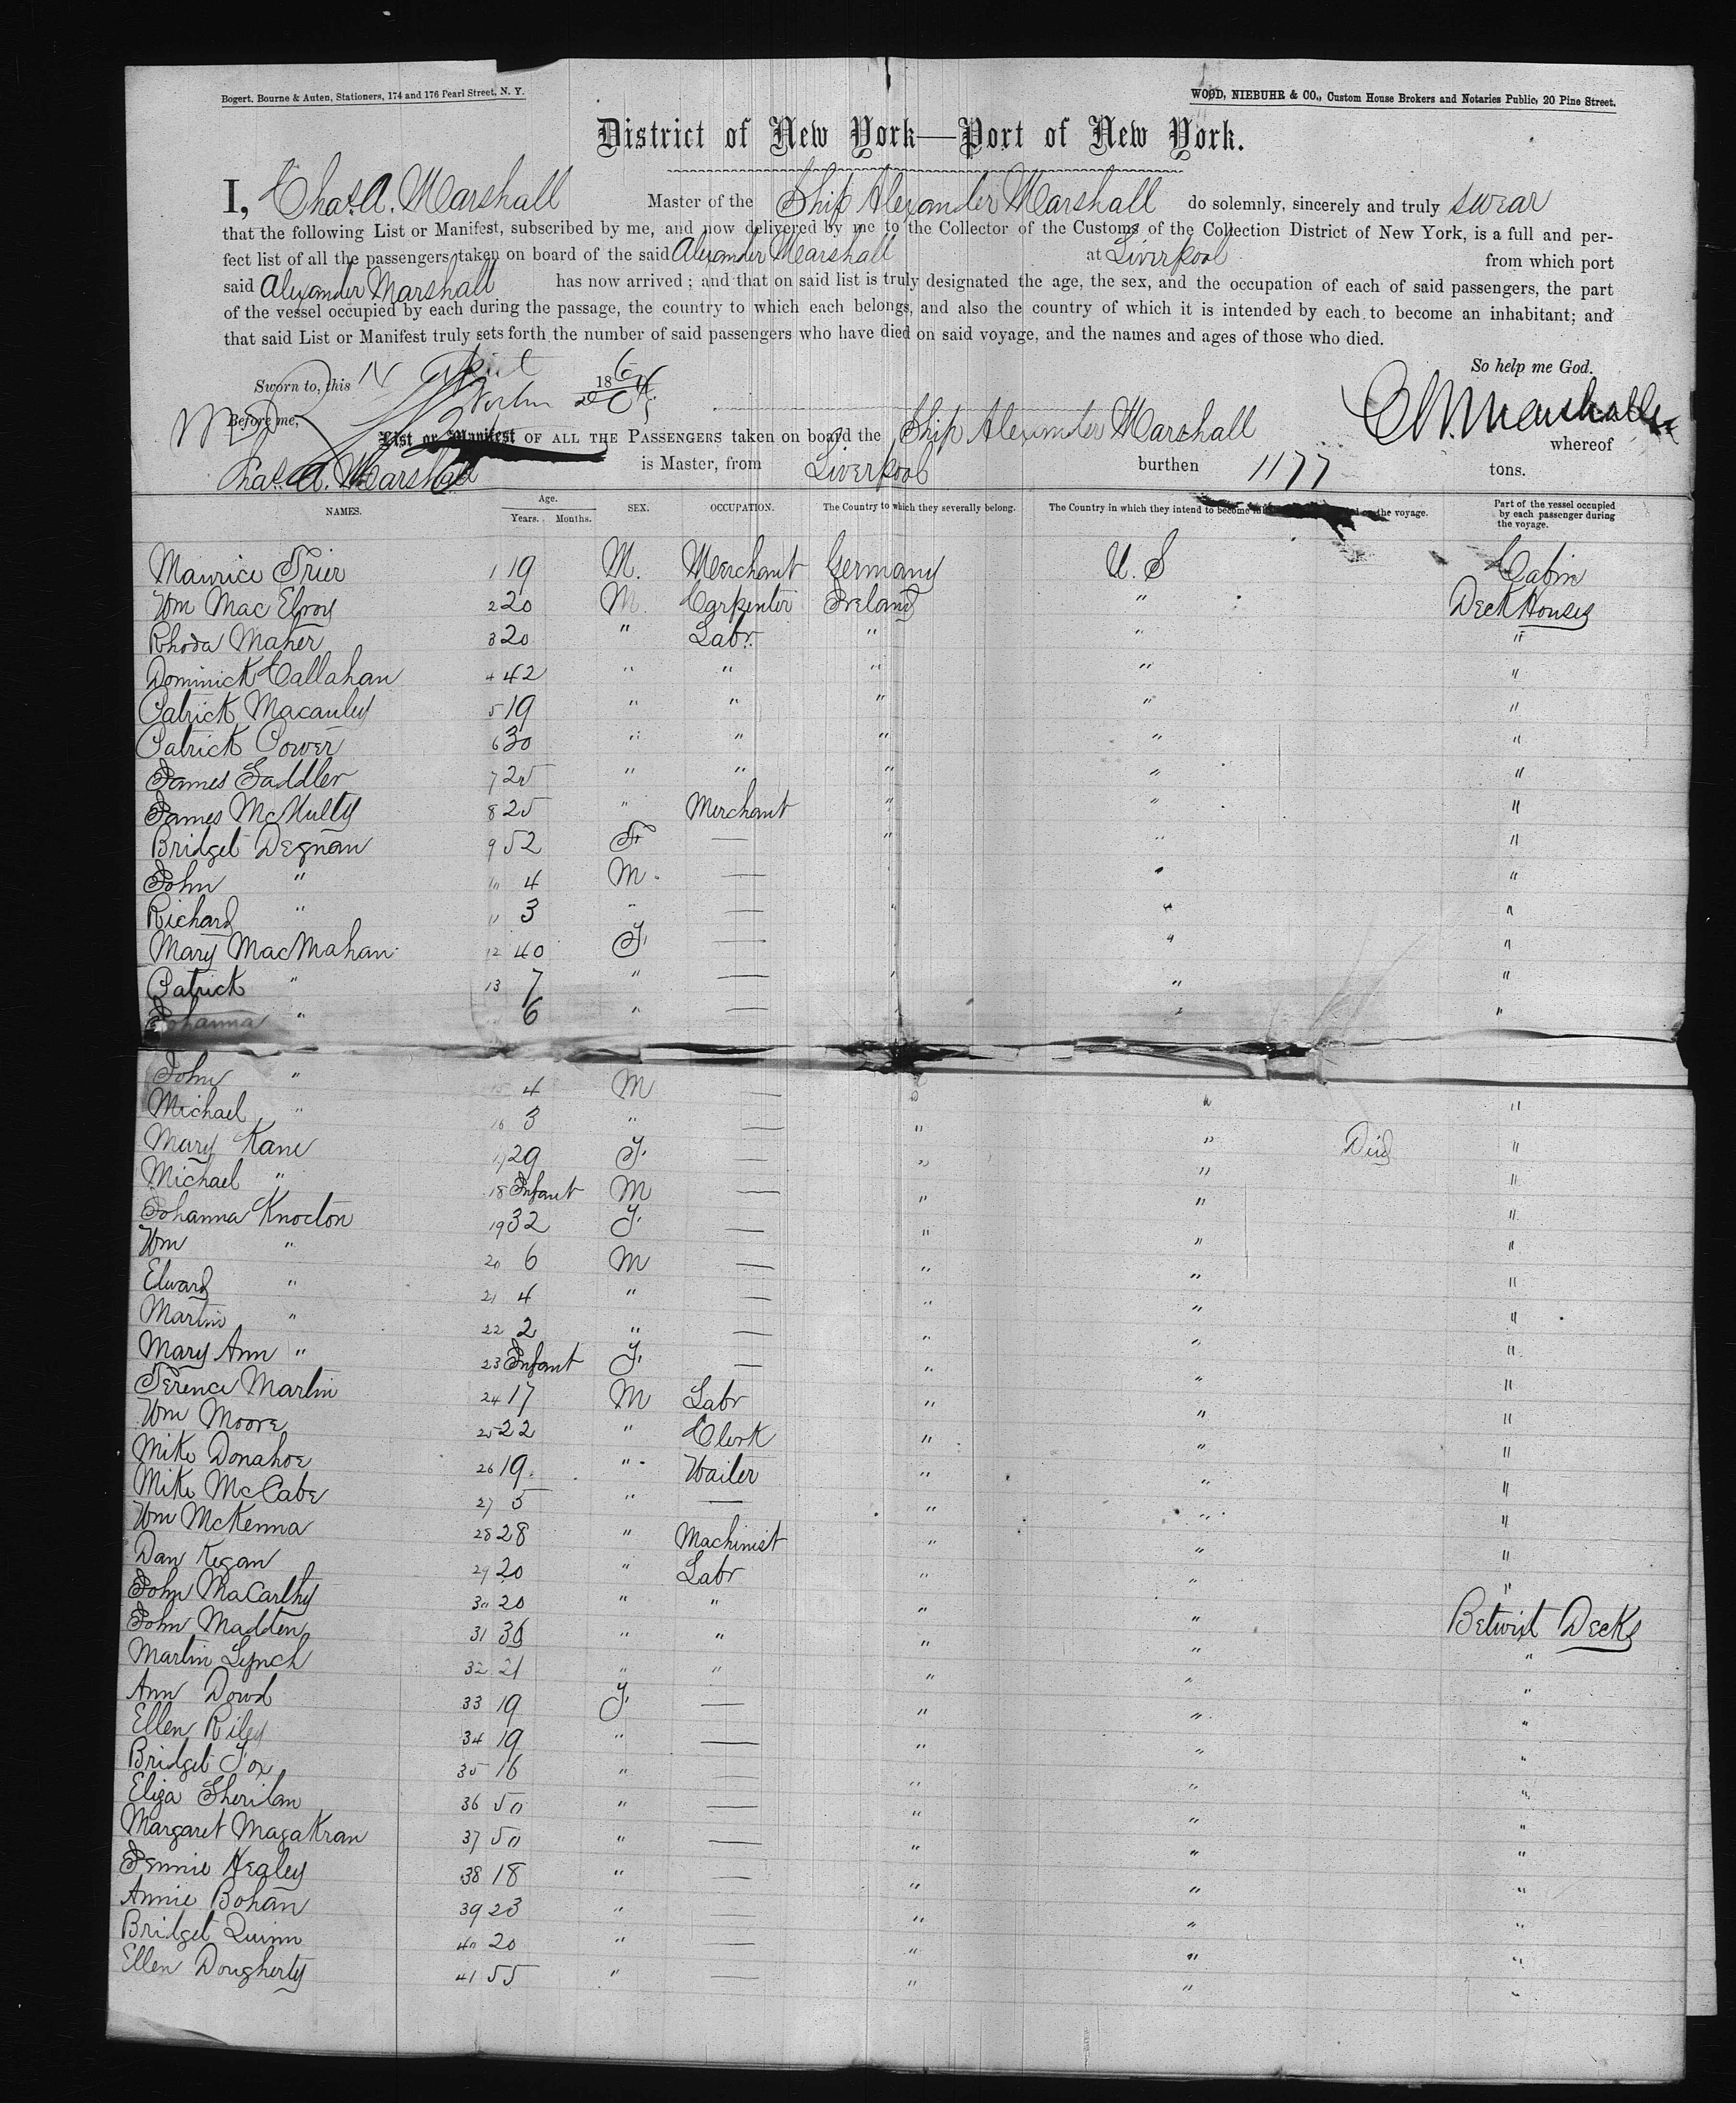 Bogert, Bourne & Auten, Stationers, 174 and 176 Pearl Street, N. Y.
WOOD, NIEBUHR & CO., Custom House Brokers and Notaries Public, 20 Pine Street.
District of New York—Port of New York.
I, Chas. A. Marshall Master of the Ship Alexander Marshall do solemnly, sincerely and truly swear
that the following List or Manifest, subscribed by me, and now delivered by me to the Collector of the Customs of the Collection District of New York, is a full and per-
fect list of all the passengers taken on board of the said Alexander Marshall at Liverpool from which port
said Alexander Marshall has now arrived; and that on said list is truly designated the age, the sex, and the occupation of each of said passengers, the part
of the vessel occupied by each during the passage, the country to which each belongs, and also the country of which it is intended by each to become an inhabitant; and
that said List or Manifest truly sets forth the number of said passengers who have died on said voyage, and the names and ages of those who died.
So help me God.
Sworn to, this 14 April 186
Before me,
List or Manifest OF ALL THE PASSENGERS taken on board the Ship Alexander Marshall whereof
Chas. A. Marshall is Master, from Liverpool burthen 1177 tons.
NAMES. Age. Years. Months. SEX. OCCUPATION. The Country to which they severally belong. The Country in which they intend to become on the voyage. Part of the vessel occupied by each passenger during the voyage.
Maurice Trier 1 19 M. Merchant Germany U. S Cabin
Wm Mac Elroy 2 20 M. Carpenter Ireland " Deck Houses
Rhoda Maher 3 20 " Labr. " " "
Dominick Callahan 4 42 " " " " "
Patrick Macauley 5 19 " " " " "
Patrick Power 6 30 " " " " "
James Saddler 7 25 " " " " "
James McNulty 8 25 " Merchant " " "
Bridget Degnan 9 52 F — " " "
John " 10 4 M. — " " "
Richard " 11 3 " — " " "
Mary MacMahan 12 40 F. — " " "
Patrick " 13 7 " — " " "
Johanna " 6 " — " " "
John " 15 4 M — " " "
Michael " 16 3 " — " " "
Mary Kane 17 29 F. — " " Died "
Michael " 18 Infant M — " " "
Johanna Knocton 19 32 F. — " " "
Wm " 20 6 M — " " "
Edward " 21 4 " — " " "
Martin " 22 2 " — " " "
Mary Ann " 23 Infant F. — " " "
Terence Martin 24 17 M Labr " " "
Wm Moore 25 22 " Clerk " " "
Mike Donahoe 26 19 " Waiter " " "
Mike McCabe 27 5 " — " " "
Wm McKenna 28 28 " Machinist " " "
Dan Kegan 29 20 " Labr " " "
John MaCarthy 30 20 " " " " "
John Madden 31 36 " " " " Betwixt Decks
Martin Lynch 32 21 " " " " "
Ann Dowd 33 19 F. — " " "
Ellen Riley 34 19 " — " " "
Bridget Fox 35 16 " — " " "
Eliza Sheridan 36 50 " — " " "
Margaret Magakran 37 50 " — " " "
Jennie Healey 38 18 " — " " "
Annie Bohan 39 23 " — " " "
Bridget Quinn 40 20 " — " " "
Ellen Dougherty 41 55 " — " " "